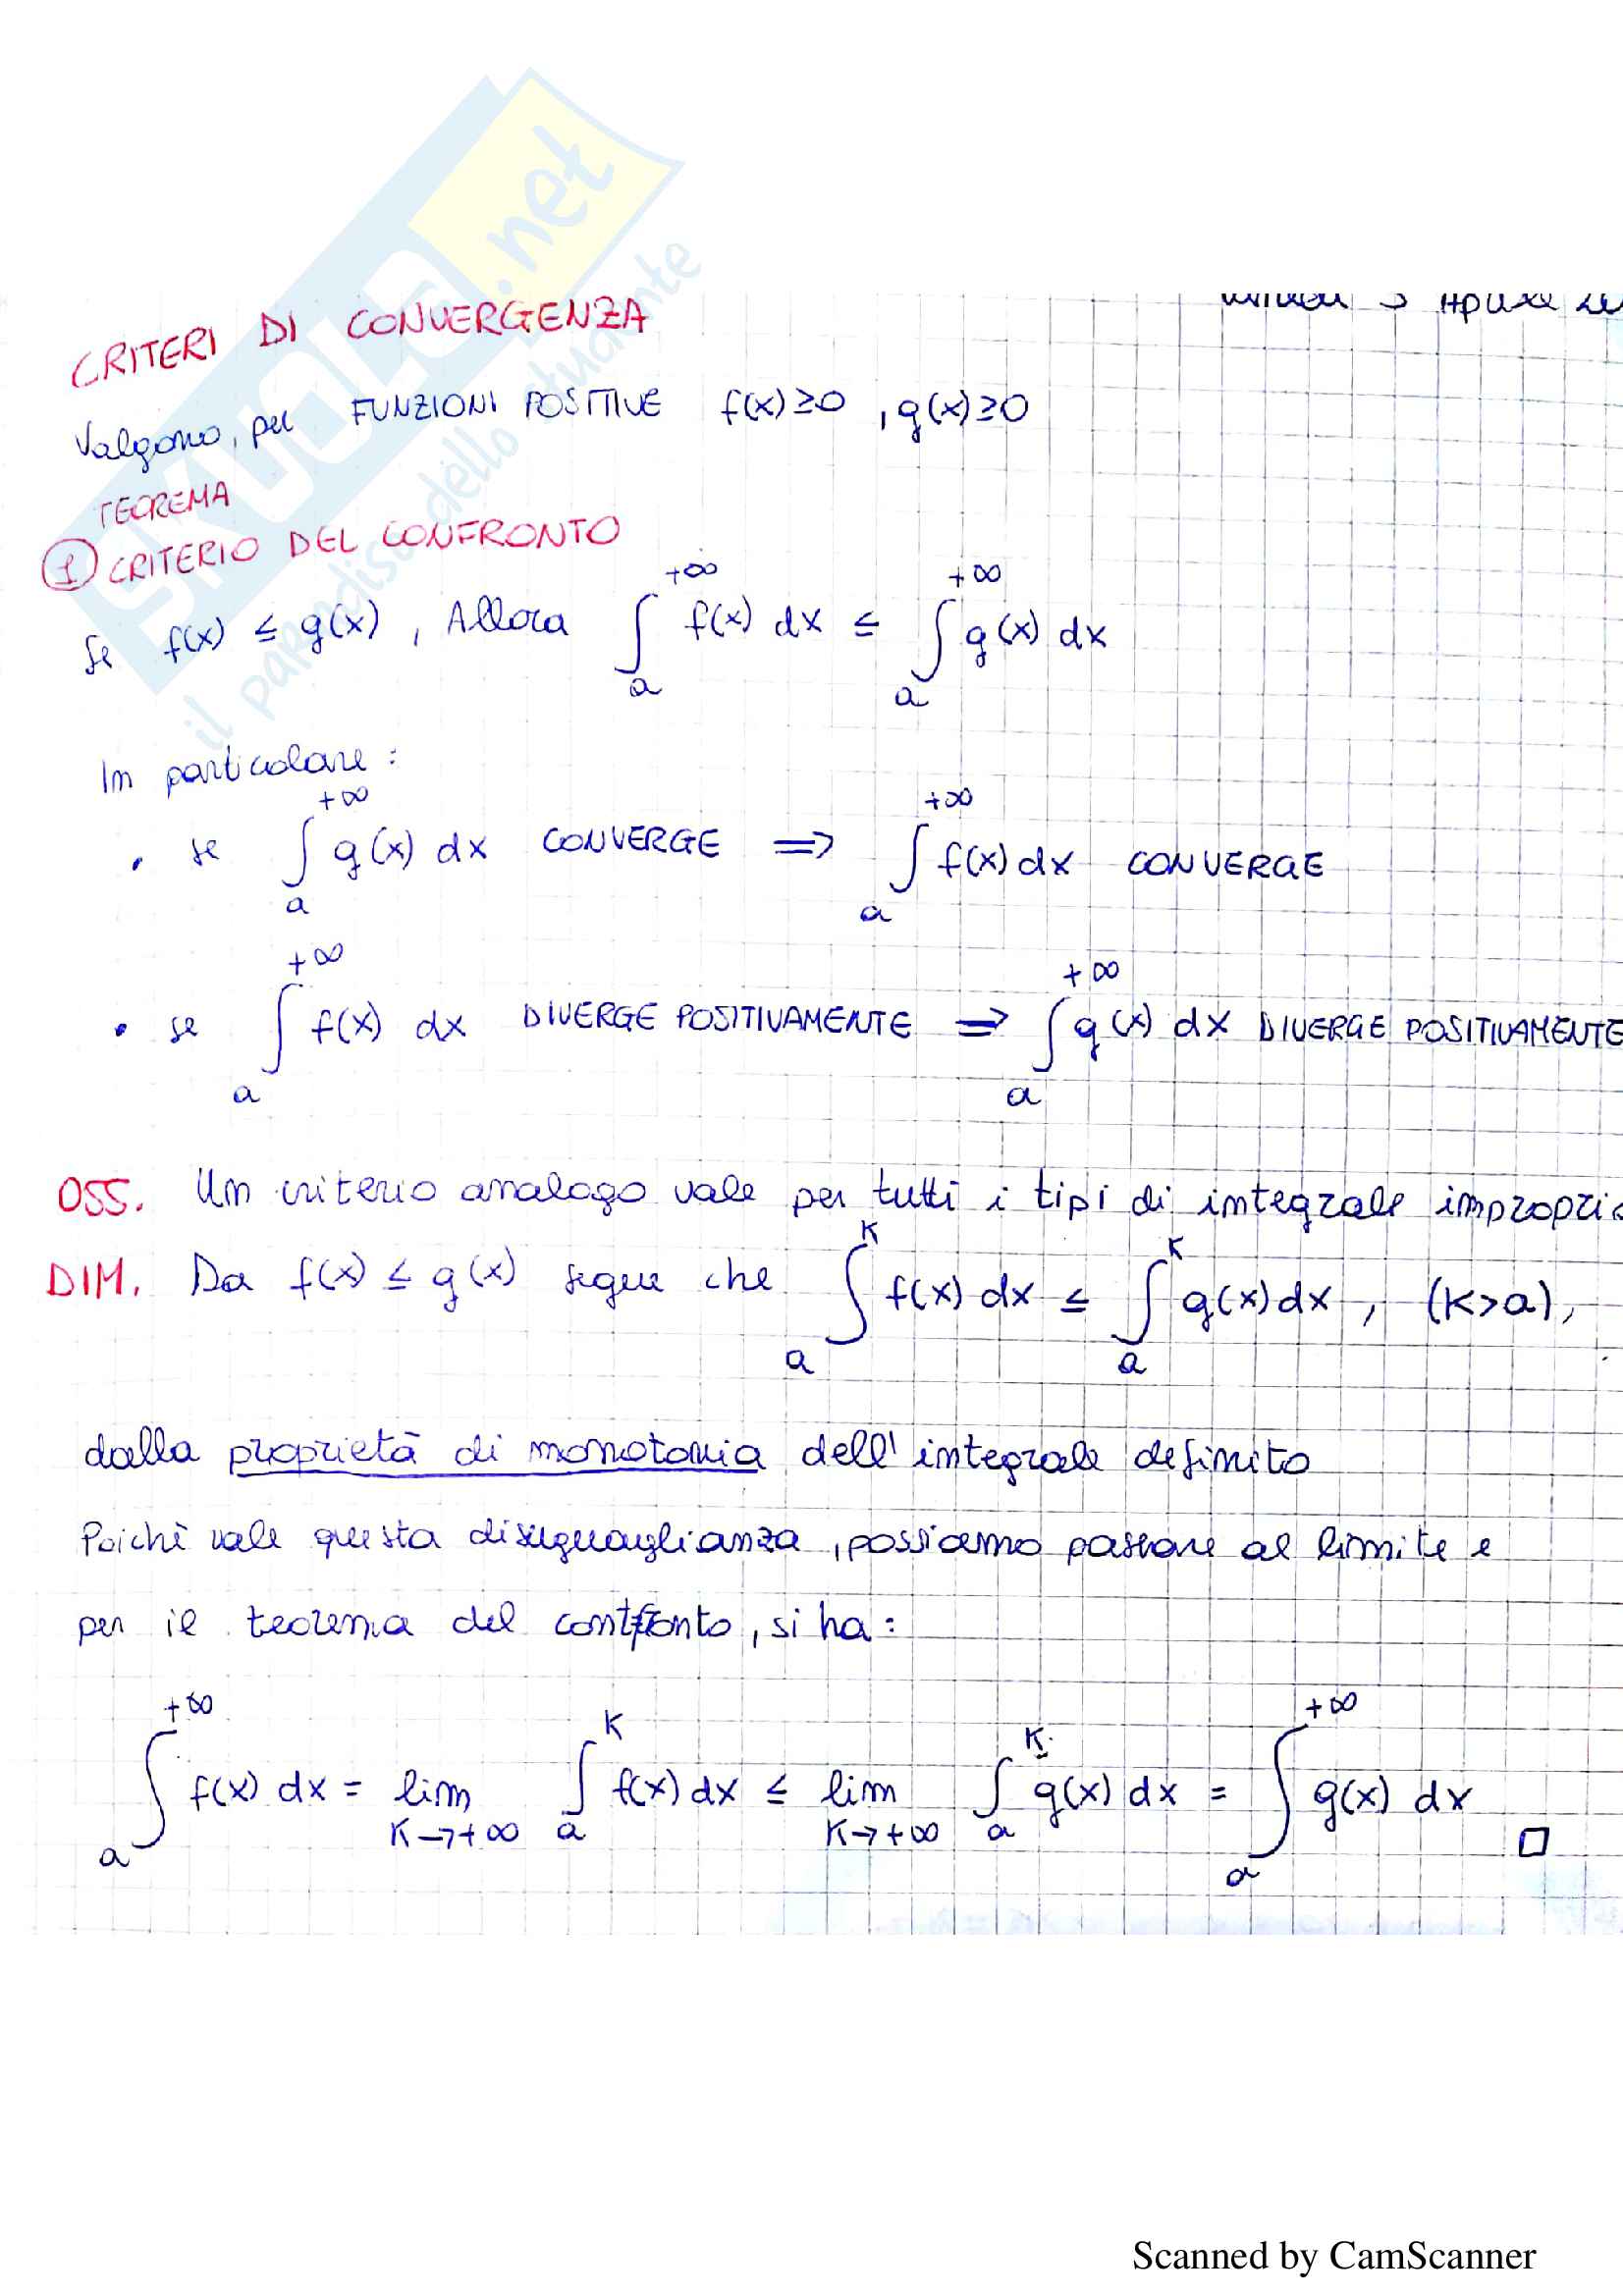 SKUOLA.net
il paradiso dello studente
CRITERI DI CONVERGENZA
Valgono, per FUNZIONI POSITIVE f(x)≥0, g(x)≥0
TEOREMA
① CRITERIO DEL CONFRONTO
Se f(x) ≤ g(x), Allora ∫_a^{+∞} f(x) dx ≤ ∫_a^{+∞} g(x) dx
In particolare:
• se ∫_a^{+∞} g(x) dx CONVERGE ⇒ ∫_a^{+∞} f(x) dx CONVERGE
• se ∫_a^{+∞} f(x) dx DIVERGE POSITIVAMENTE ⇒ ∫_a^{+∞} g(x) dx DIVERGE POSITIVAMENTE
OSS. Un criterio analogo vale per tutti i tipi di integrale
DIM. Da f(x) ≤ g(x) segue che ∫_a^K f(x) dx ≤ ∫_a^K g(x) dx, (K>a),
dalla proprietà di monotonia dell'integrale definito
Poichè vale questa diseguaglianza, possiamo passare al limite e
per il teorema del confronto, si ha:
∫_a^{+∞} f(x) dx = lim_{K→+∞} ∫_a^K f(x) dx ≤ lim_{K→+∞} ∫_a^K g(x) dx = ∫_a^{+∞} g(x) dx □
Scanned by CamScanner